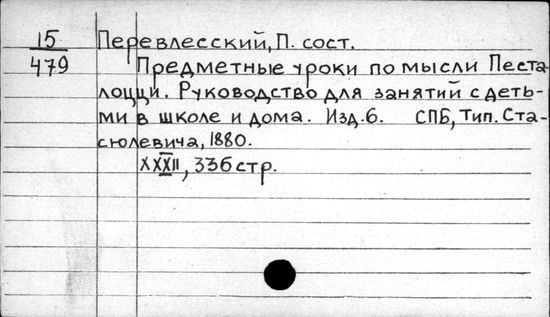 15 Перевлесский, П. сост.
479 Предметные уроки по мысли Песта-
лоцци. Руководство для занятий с деть-
ми в школе и дома. Изд. 6. СПБ, Тип. Ста-
сюлевича, 1880.
XXXII, 336 стр.